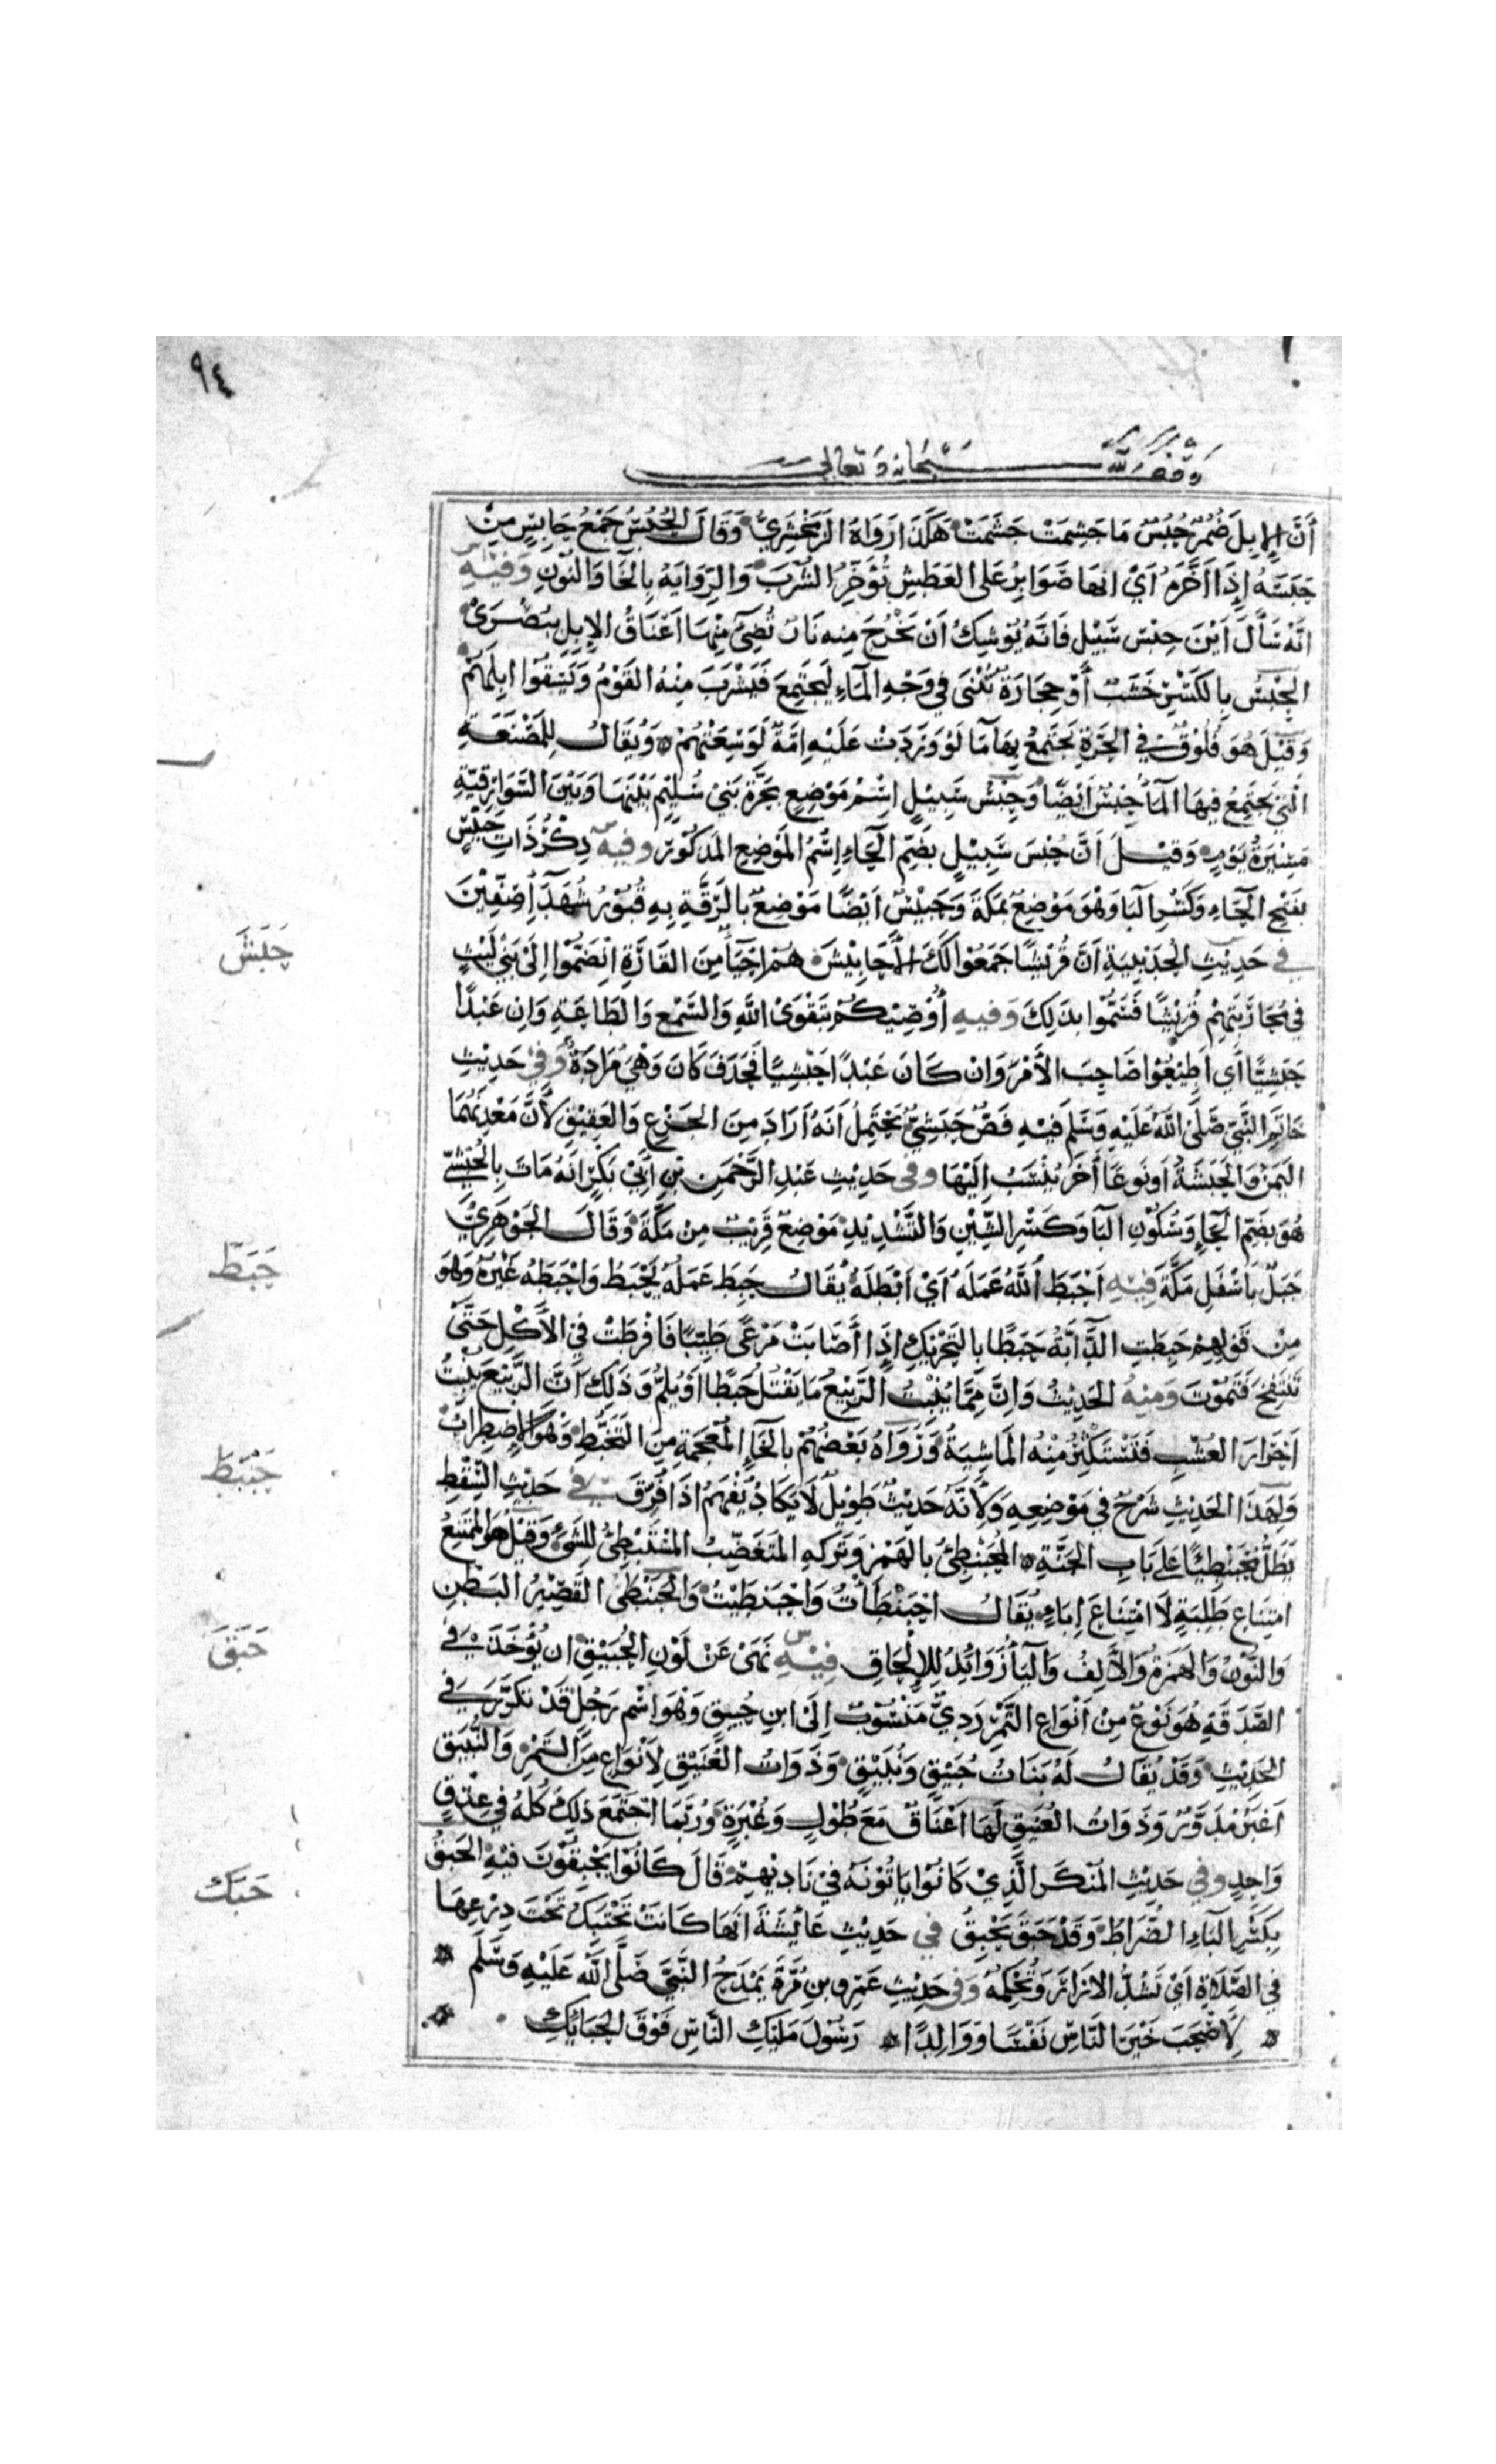 ٩٤
وقف لله سبحانه وتعالى
أَنَّ الإِبِلَ ضُمُرٌ حُبُسٌ مَا جُشِّمَتْ جَشِمَتْ هَكَذَا رَوَاهُ الزَمَخْشَرِيُّ وَقَالَ الحُبُسُ جَمْعُ حَابِسٍ مِنْ
حَبَسَهُ إِذَا أَخَّرَهُ أَيْ انها صَوَابِرُ عَلى العَطَشِ تُؤَخِّرُ الشُّرْبَ وَالرِّوَايَةُ بِالخَا وَالنُّونِ وَفِيْهِ س
انَّهُ سَأَلَ أَيْنَ حِبْسُ سَيَلٍ فَانَّهُ يُوْشِكُ أَنْ تَخْرُجَ مِنه نَارٌ تُضِيْءُ مِنْهَا أَعْنَاقُ الإِبِلِ بِبُصْرَىْ
الحِبْسُ بِالكَسْرِ خَشَبٌ أَوْ حِجَارَةٌ تُبْنَى فِي وَجْهِ المَاءِ لِيَجتَمِعَ فَيَشْرَبَ مِنْهُ القَوْمُ وَيَسْقُوْا ابِلَهُمْ
وَقِيْلَ هُوَ فُلُوْقٌ في الحَرَّةِ يَجتَمِعُ بِهَا مَا لَوْ وَرَدَتْ عَلَيْهِ امَّةٌ لَوَسِعَتْهُمْ وَيُقَالُ لِلمَصْنَعَةِ
الَّتِيْ يَجتَمِعُ فِيهَا المَأُ حِبْسٌ أَيْضًا وَحِبْسُ سَيَلٍ اسْمُ مَوْضِعٍ بِحَرَّةِ بَنِيْ سُلَيْمٍ بَيْنَهَا وَبَيْنَ السَّوَارِقِيَّةِ
مَسِيْرَةُ يَوْمٍ وَقِيْلَ أَنَّ حُبْسَ سَيَلٍ بضَمِّ الحَاءِ اسْمُ المَوْضِعِ المَذكُوْرِ وفيه س ذِكْرُ ذَاتِ حَبِيْسٍ
بفَتْحِ الحَاءِ وَكَسْرِ البَا وَهْوَ مَوْضِعٌ بمَكَّةَ وَحَبِيْسٌ ايْضًا مَوْضِعٌ بالرَّقَّةِ بِهِ قُبُوْرُ شُهَدَاءِ صِفِّيْنَ
حَبَشَ
في حَدِيْثِ الحُدَيْبِيَةِ انَّ قُرَيْشًا جَمَعُوْا لَكَ الأَحَابِيْشَ هُمْ احْيَاءٌ مِنَ القَارَّةِ انْضَمُّوْا إِلَى بَنِيْ لَيْثٍ
فِيْ مُحَارَبَتِهِمْ قُرَيْشًا فَسُمُّوْا بذَلِكَ وَفيهِ أُوْصِيْكُمْ بِتَقْوَىْ اللهِ وَالسَّمْعِ وَالطَاعَةِ وَان عَبْدًا
حَبَشِيًّا أَي اطِيْعُوْا صَاحِبَ الأَمْرِ وَانْ كَانَ عَبْدًا حَبْشِيًا فَحَذَفَ كَانَ وَهْيَ مُرَادَةٌ وَفِيْ حَدِيْثِ
خَاتَمِ النَّبِيِّ صَلَّى اللهُ عَلَيْهِ وَسَلَّم فِيْهِ فَصٌّ حَبَشِيٌّ يَحْتَمِلُ انَهُ ارَادَ مِنَ الجَزْعِ وَالعَقِيْقِ لأَنَّ مَعْدِنَهُمَا
اليَمَنُ وَالحَبَشَةُ اونَوعًا أَخَرَ يُنْسَبُ الَيْهَا وفى حَدِيْثِ عَبْدِ الرَّحْمَنِ بْنِ أَبِيْ بَكْرٍ انَهُ مَاتَ بِالحُبْشِيّ
هُوَ بِضَمِّ الحَاءِ وَسُكُوْنِ البَا وَكَسْرِ الشِّيْنِ وَالتَّشْدِيْدِ مَوْضِعٌ قَرِيْبٌ مِنْ مَكَّةَ وَقَالَ الجَوْهَرِيُّ
حَبَطَ
جَبَلٌ بِأَسْفَلِ مَكَّةَ فِيْهِ احْبَطَ اللهُ عَمَلَهُ أَيْ ابْطَلَهُ يُقَالُ حَبِطَ عَمَلُهُ يَحْبَطُ وَاحْبَطَهُ غَيْرُهُ وَهُوَ
مِنْ قَوْلِهِمْ حَبِطَتِ الدَّابَّةُ حَبَطًا بالتَحْرِيْكِ إِذَا أَصَابَتْ مَرْعًى طَيِّبًا فَافْرَطَتْ فِي الأَكْلِ حَتَّىْ
تَنْتَفِخَ فَتَمُوْتَ وَمِنْهُ الحَدِيْثُ وَانَّ مِمَّا يُنْبِتُ الرَّبِيْعُ مَا يَقْتُلُ حَبَطًا اوْ يُلِمُّ وَذَلِكَ انَّ الرَّبِيْعَ يُنْبِتُ
احْرَارَ العُشْبِ فَتَسْتَكْثِرُ مِنْهُ المَاشِيَةُ وَرَوَاهُ بَعْضُهُمْ بالخَاءِ المُعْجَمَةِ مِنَ التَخَبُّطِ وَهْوَ الاضطِرَابُ
حَبَنْطَ
وَلِهَذَا الحَدِيْثِ شَرْحٌ في مَوْضِعِهِ وَلأَنَّهُ حَدِيْثٌ طَوِيْلٌ لَا يَكَادُ يُفْهَمُ اذَا فُرِّقَ في حَدِيْثِ السِّقْطِ
يَظَلُّ مُحْبَنْطِئًا عَلَى بَابِ الجَنَّةِ المُحْبَنْطِئُ بالهَمْزِ وَتَرْكِهِ المتَغَضِّبُ المُسْتَبْطِئُ لِلشَّيْءِ وَقِيْلَ هُوَ المُمْتَنِعُ
امْتِنَاعَ طَلِبَةٍ لَا امْتِنَاعَ اِبَاءٍ يُقَالُ احْبَنْطَأْتُ وَاحْبَنطَيْتُ وَالحَبَنْطَىْ القَصِيْرُ البَطِنُ
حَبَقَ
وَالنُّوْنُ وَالهَمْزَةُ وَالأَلِفُ وَاليَأُ زَوَائِدُ لِلإِلْحَاقِ فِيْهِ س نَهَىْ عَنْ لَوْنِ الحُبَيْقِ ان يُؤْخَذَ في
الصَّدَقَةِ هُوَ نَوْعٌ مِنْ انْوَاعِ التَّمْرِ رَدِيٌّ مَنْسُوْبٌ الَى ابنِ حُبَيقٍ وَهْوَ اسْم رَجُلٍ قَدْ تكَرَّرَ في
الحَدِيْثِ وَقَدْ يُقَالُ لَهُ بَنَاتُ حُبَيْقٍ وَنُبَيْقٍ وَذَوَاتُ العُنَيْقِ لأَنْوَاعٍ مِنَ التَمْرِ وَالنُّبَيْقُ
اغْبَرُ مُدَوَّرٌ وَذَوَاتُ العُنَيْقِ لَهَا اعْنَاقٌ مَعَ طُوْلٍ وَغُبْرَةٍ وَرُبَّمَا اجْتَمَعَ ذَلِكَ كُلُّهُ فِي عِذْقٍ
وَاحِدٍ وفي حَدِيْثِ المُنْكَرِ الَّذِيْ كَانُوْا يَاتُوْنَهُ فِيْ نَادِيْهِمْ قَالَ كَانُوْا يَحْبِقُوْنَ فِيْهِ الحَبِقُ
حَبَكَ
بِكَسْرِ البَاءِ الضُرَاطُ وَقَدْ حَبَقَ يَحْبِقُ في حَدِيْثِ عَائِشَةَ انَّهَا كَانَتْ تَحْتَبِكُ تَحْتَ دِرْعِهَا
في الصَّلَاةِ أَيْ تَشُدُّ الازَارَ وَتُحْكِمُهُ وَفِي حَدِيْثِ عَمْرِو بنِ مُرَّةَ يَمْدَحُ النَّبِيَّ صَلَّى اللهُ عَلَيْهِ وَسَلَّم
لأَصْحَبَ خَيْرَ النَّاسِ نَفْسًا وَوَالِدًا رَسُوْلَ مَلِيْكِ النَّاسِ فَوْقَ الحَبَائِكِ